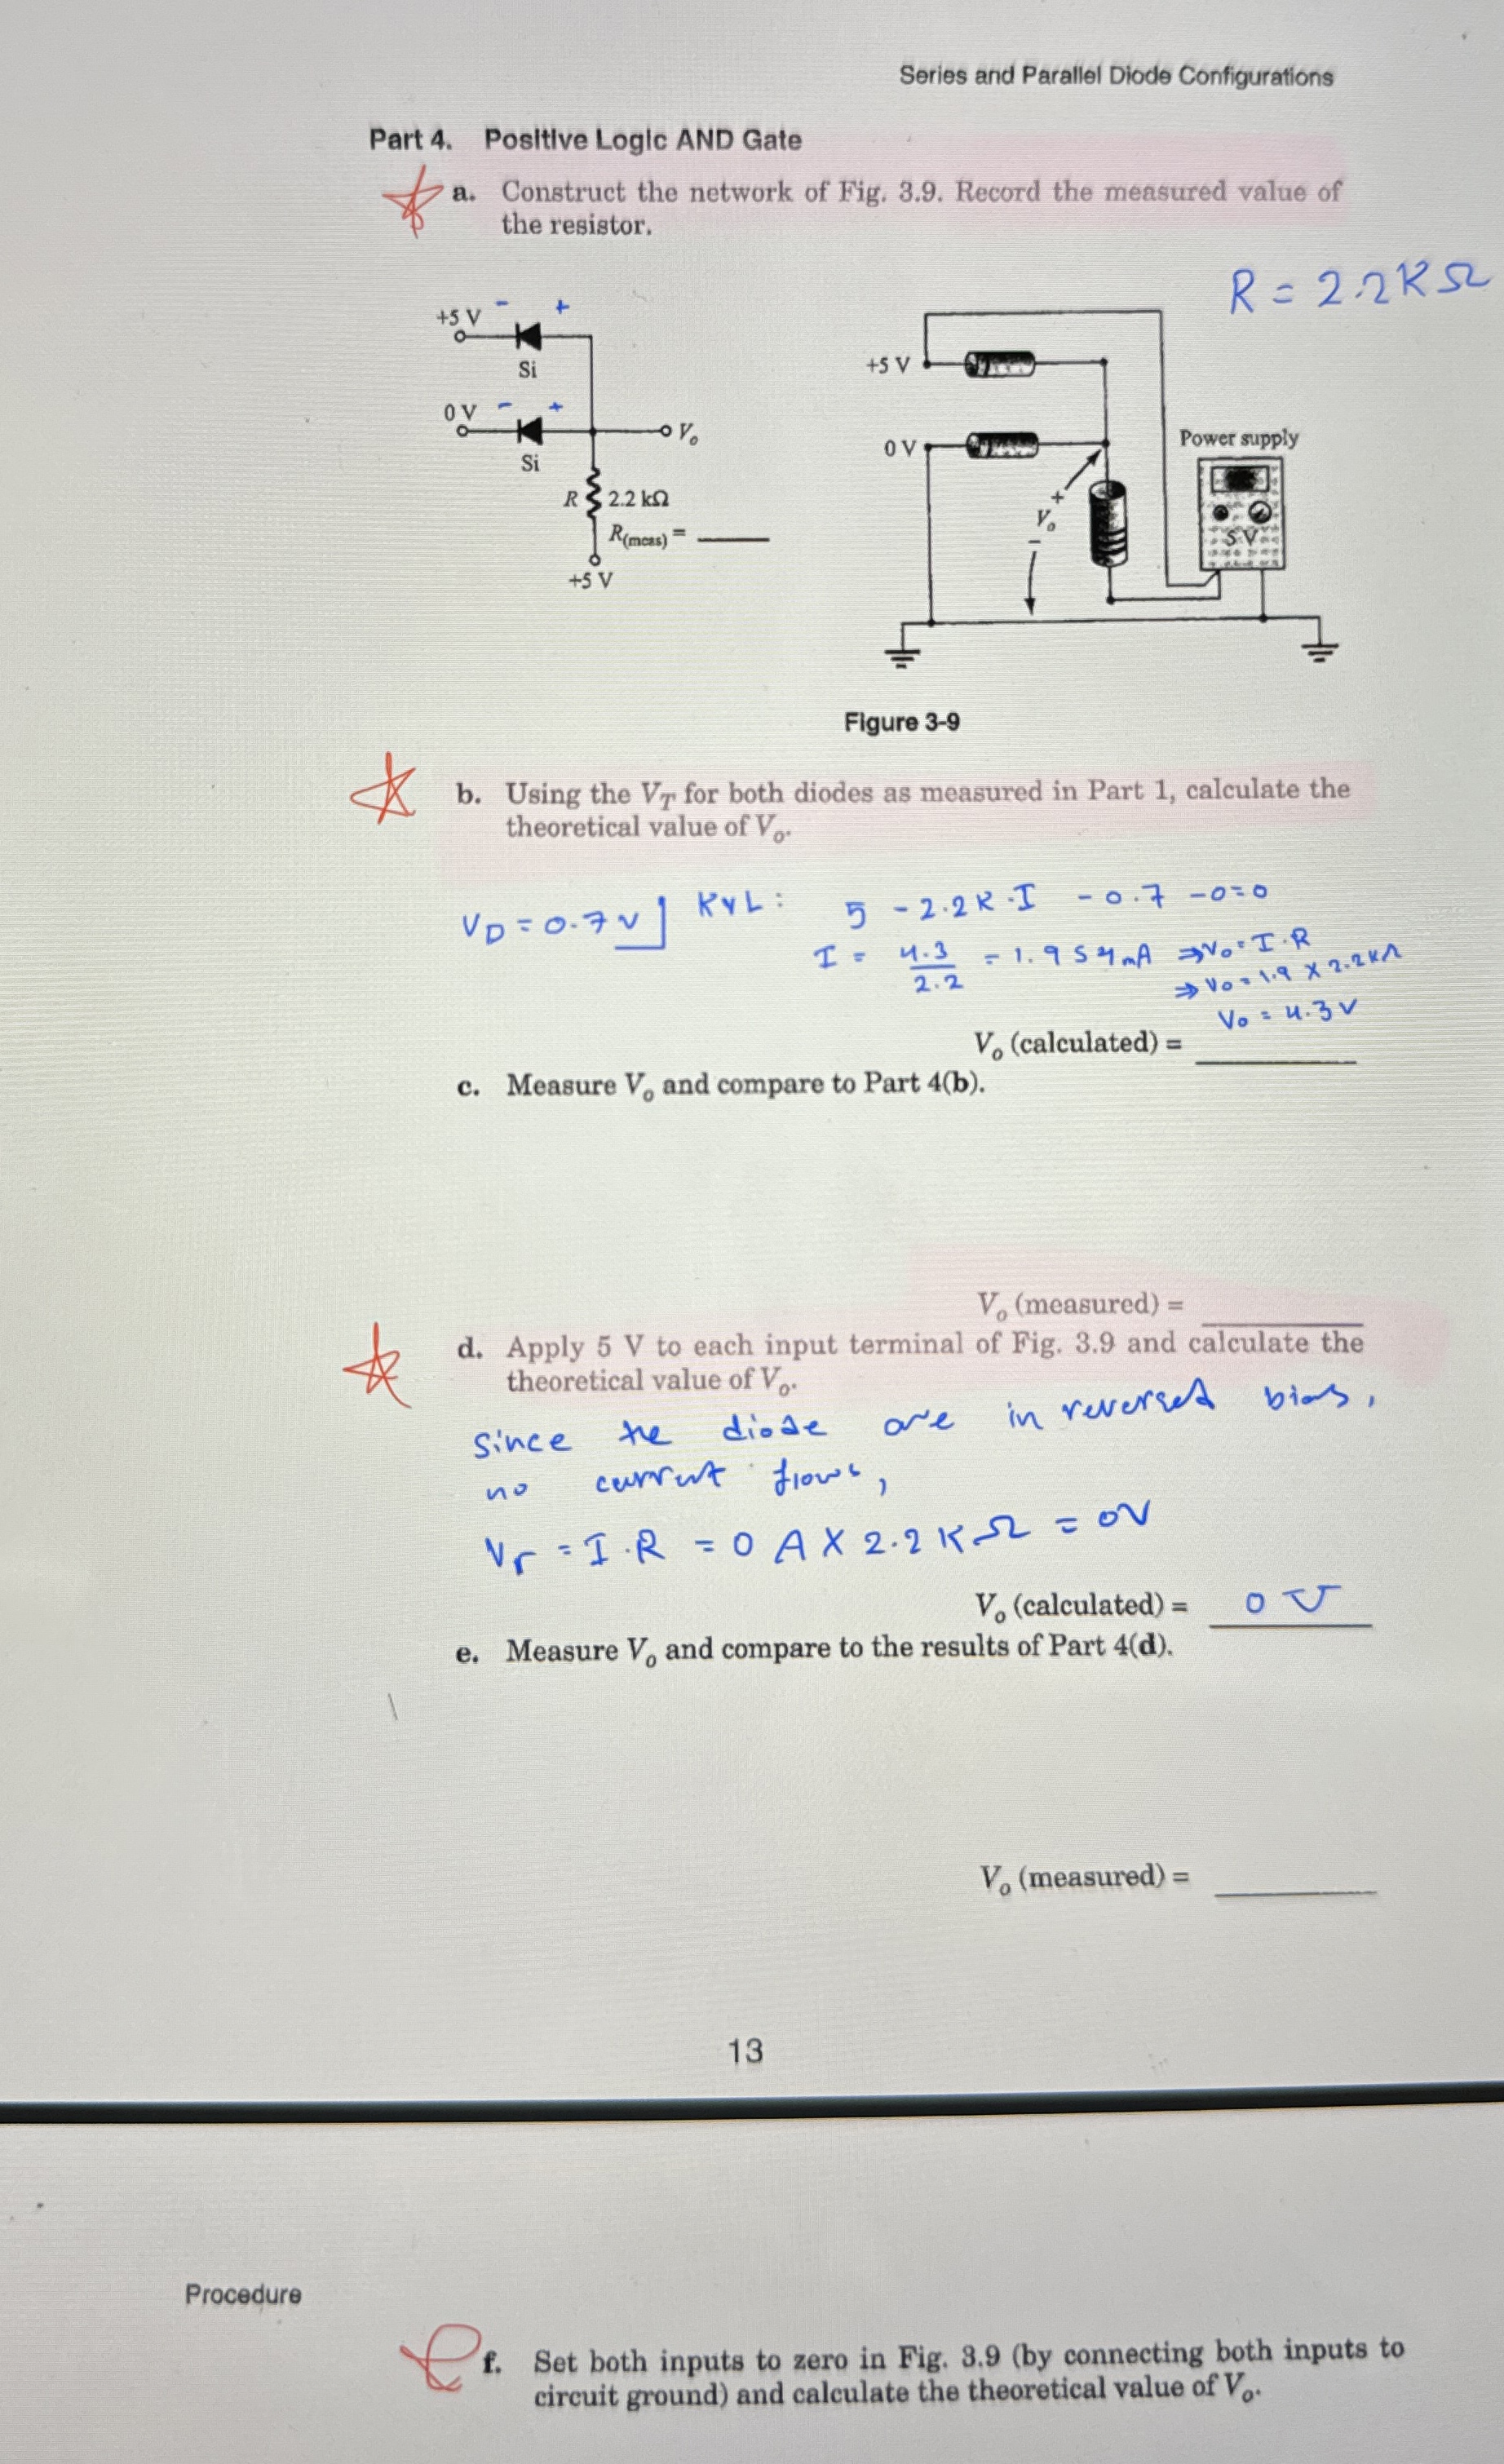 Series and Parallel Diode Configurations
Part 4. Positive Logic AND Gate
a. Construct the network of Fig. 3.9. Record the measured value of
the resistor.
R = 2.2KΩ
+5 V - +
Si
0 V - +
Si
Vo
R 2.2 kΩ
R(meas) = ____
+5 V
+5 V
0 V
+
Vo
-
Power supply
5 V
Figure 3-9
b. Using the VT for both diodes as measured in Part 1, calculate the
theoretical value of Vo.
VD = 0.7 V KVL: 5 - 2.2K·I - 0.7 - 0 = 0
I = 4.3/2.2 = 1.954mA ⇒ Vo = I·R
⇒ Vo = 1.9 × 2.2kΩ
Vo = 4.3 V
Vo (calculated) = ____
c. Measure Vo and compare to Part 4(b).
Vo (measured) = ____
d. Apply 5 V to each input terminal of Fig. 3.9 and calculate the
theoretical value of Vo.
since the diode are in reversed bias,
no current flows,
Vr = I·R = 0 A X 2.2 K Ω = 0V
Vo (calculated) = 0 V
e. Measure Vo and compare to the results of Part 4(d).
Vo (measured) = ____
13
Procedure
f. Set both inputs to zero in Fig. 3.9 (by connecting both inputs to
circuit ground) and calculate the theoretical value of Vo.